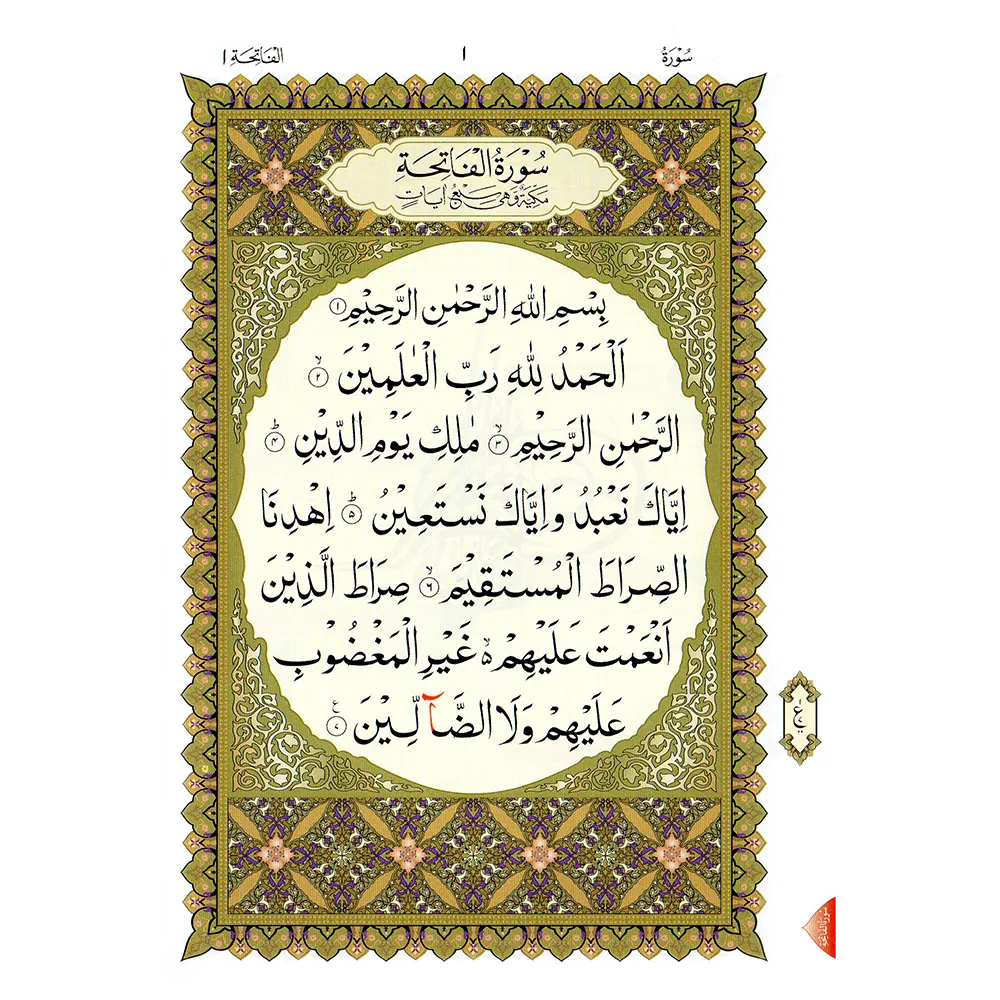 سُوْرَةُ ١ الْفَاتِحَةِ ١
سُوْرَةُ الْفَاتِحَةِ
مَكِّيَّةٌ وَّهِيَ سَبْعُ اٰيَاتٍ
بِسْمِ اللهِ الرَّحْمٰنِ الرَّحِيْمِ ١
اَلْحَمْدُ لِلّٰهِ رَبِّ الْعٰلَمِيْنَ ٢ۙ
الرَّحْمٰنِ الرَّحِيْمِ ٣ۙ مٰلِكِ يَوْمِ الدِّيْنِ ۴ؕ
اِيَّاكَ نَعْبُدُ وَاِيَّاكَ نَسْتَعِيْنُ ۵ؕ اِهْدِنَا
الصِّرَاطَ الْمُسْتَقِيْمَ ٦ۙ صِرَاطَ الَّذِيْنَ
اَنْعَمْتَ عَلَيْهِمْ ۙ۬ غَيْرِ الْمَغْضُوْبِ
عَلَيْهِمْ وَلَا الضَّآلِّيْنَ ٧ع
ع
سورة الفاتحة